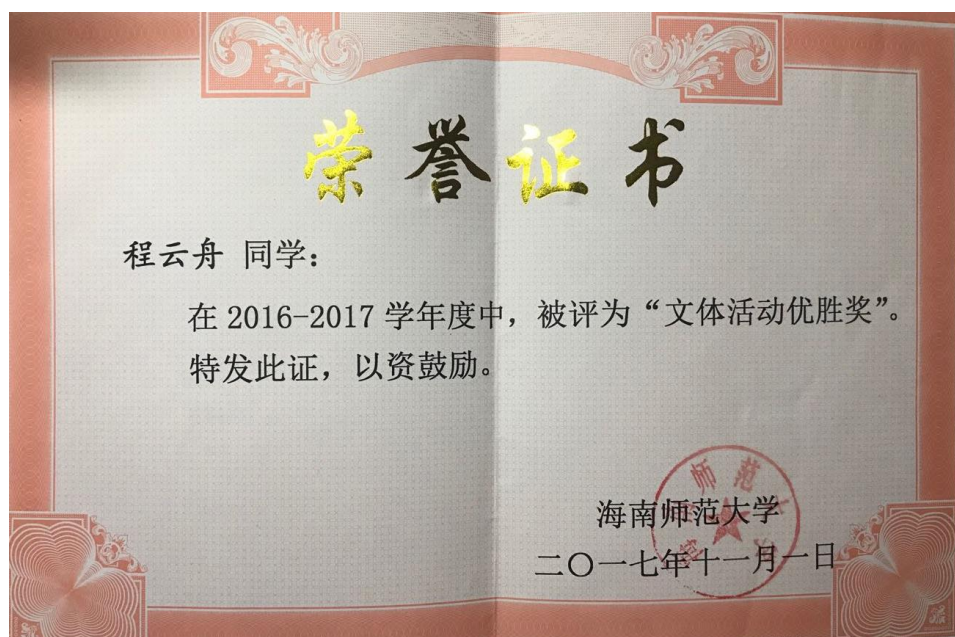 荣誉证书
程云舟 同学：
在 2016-2017 学年度中，被评为“文体活动优胜奖”。
特发此证，以资鼓励。
海南师范大学
二〇一七年十一月一日